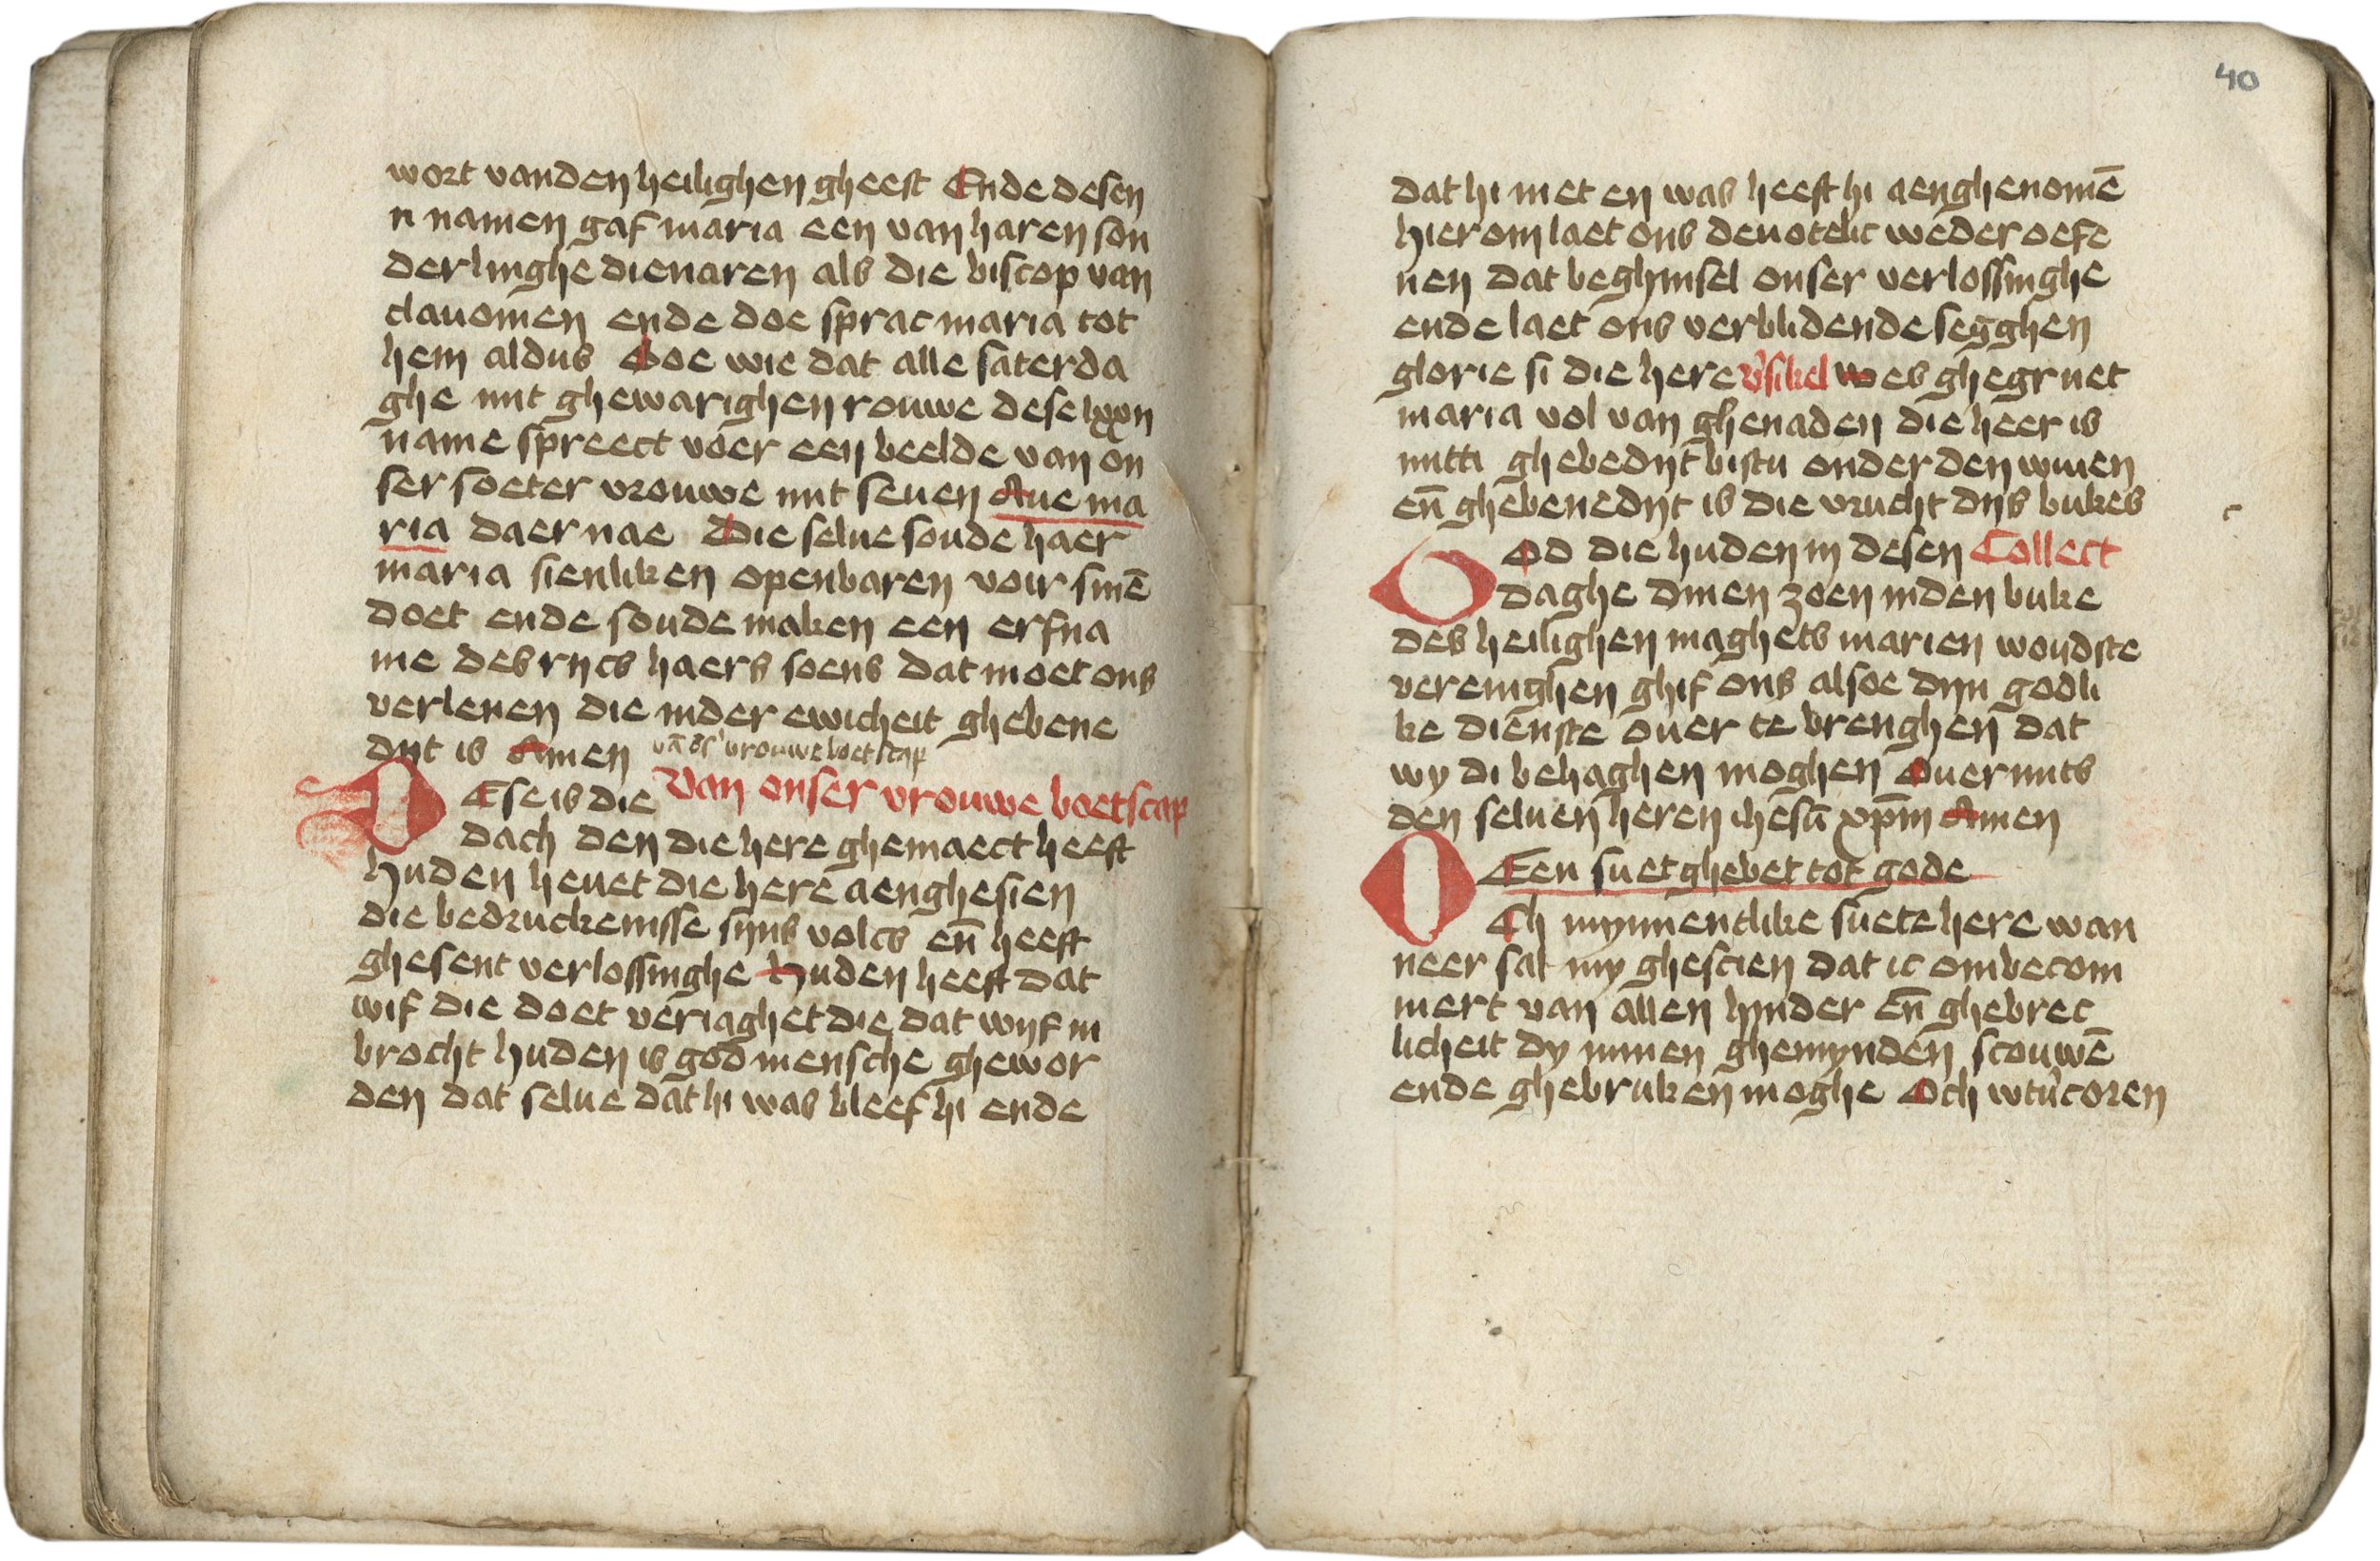 wort vanden heilighen gheest Ende desen
n namen gaf maria een van haren son
derlinghe dienaren als die biscop van
clauomen ende doe sprac maria tot
hem aldus Soe wie dat alle saterda
ghe mit ghewarighen rouwe dese lxxn
name spreect voer een beelde van on
ser soeter vrouwe mit seuen Aue ma
ria daer nae Die selue soude haer
maria sienliken openbaren voir sinē
doet ende soude maken een erfna
me des rijcs haers soens dat moet ons
verlenen die inder ewicheit ghebene
dijt is Amen vā ōs' vrouwe boetscap
DEse is die Van onser vrouwe boetscap
dach den die here ghemaect heeft
huden heuet die here aenghesien
die bedruckenisse sijns volcs eñ heeft
ghesent verlossinghe Huden heeft dat
wif die doet veriaghet die dat wijf in
brocht huden is god mensche ghewor
den dat selue dat hi was bleef hi ende
40
dat hi niet en was heeft hi aenghenomē
hier om laet ons deuotelic weder oefe
nen dat beghinsel onser verlossinghe
ende laet ons verblidende segghen
glorie si die here v'sikel wes ghegruet
maria vol van ghenaden die heer is
mitti ghebedijt bistu onder den wiuen
eñ ghebenedijt is die vrucht dijs bukes
GOd die huden in desen Collect
daghe dinen zoen inden buke
des heilighen maghets marien woudste
verenighen ghif ons alsoe dijn godli
ke dienste ouer te brenghen dat
wy di behaghen moghen Ouermits
den seluen heren ihesū xp̄m Amen
Een suet ghebet tot gode
OCh mynnentlike suete here wan
neer sal my ghescien dat ic ombecom
mert van allen hinder eñ ghebrec
licheit dy minen ghemynden scouwē
ende ghebruken moghe Och wtu'coren